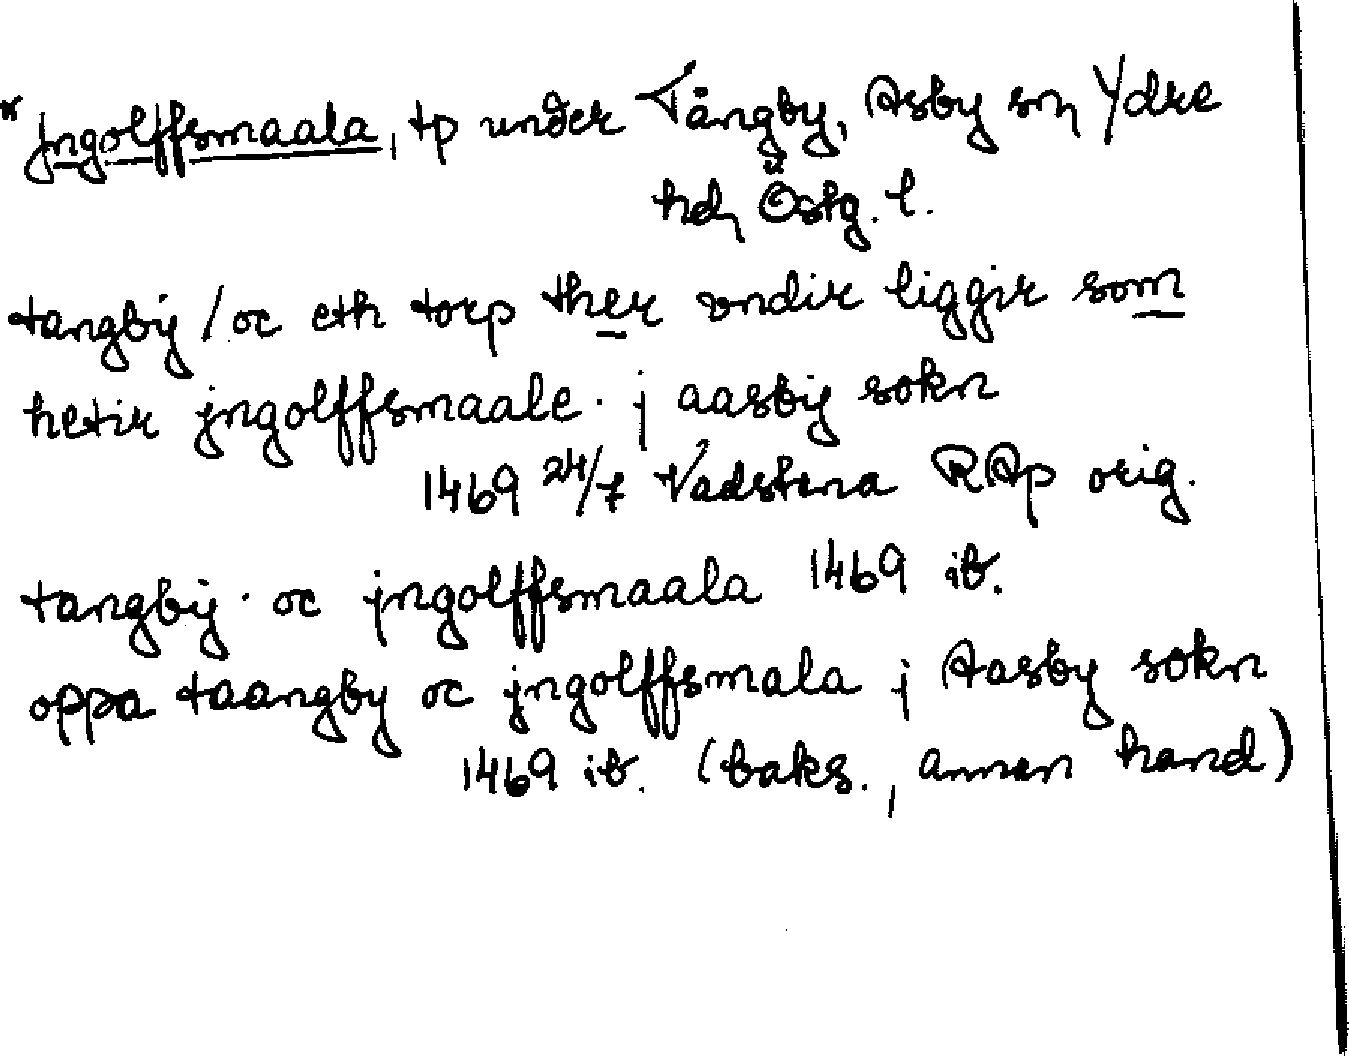 * jngolffsmaala, tp under Tångby, Asby sn Ydre
hd, Östg. l.
tangbÿ / oc eth torp ther vndir liggir som
hetir jngolffsmaale · j aasbÿ sokn
1469 24/7 Vadstena RAp orig.
tangbÿ · oc jngolffsmaala 1469 ib.
oppa taangby oc jngolffsmala j Aasby sokn
1469 ib. (baks., annan hand)